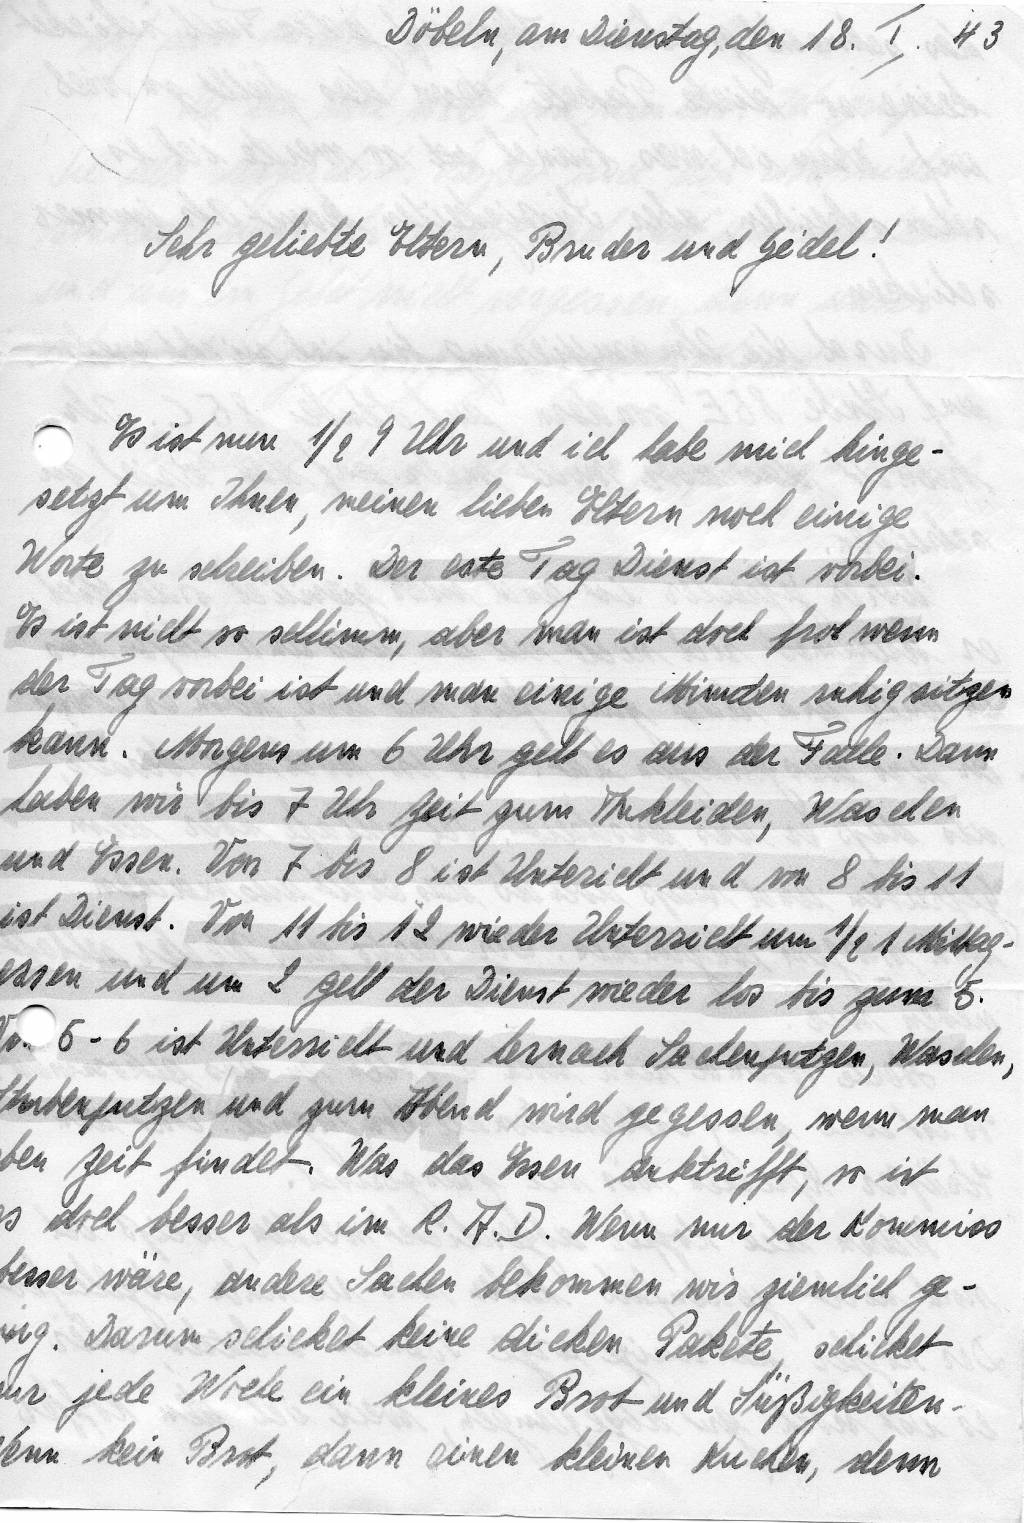 Döbeln, am Dienstag, den 18. I. 43
Sehr geliebte Eltern, Bruder und Gedel!
Es ist nun 1/2 9 Uhr und ich habe mich hinge-
setzt um Ihnen, meinen lieben Eltern noch einige
Worte zu schreiben. Der este Tag Dienst ist vorbei.
Es ist nicht so schlimm, aber man ist doch froh wenn
der Tag vorbei ist und man einige Minuten ruhig sitzen
kann. Morgens um 6 Uhr geht es aus der Falle. Dann
haben wir bis 7 Uhr Zeit zum Ankleiden, Waschen
und Essen. Von 7 bis 8 ist Untericht und von 8 bis 11
ist Dienst. Von 11 bis 12 wieder Unterricht um 1/2 1 Mittag-
essen und um 2 geht der Dienst wieder los bis zum 5.
Von 5 - 6 ist Unterricht und hernach Sachenputzen, Waschen,
Stubenputzen und zum Abend wird gegessen, wenn man
eben Zeit findet. Was das Essen anbtrifft, so ist
es doch besser als im R.A.D. Wenn nur der Kommiss
besser wäre, andere Sachen bekommen wir ziemlich ge-
nug. Darum schicket keine dicken Pakete, schicket
nur jede Woche ein kleines Brot und Süßigkeiten.
Wenn kein Brot, dann einen kleinen Kuchen, denn